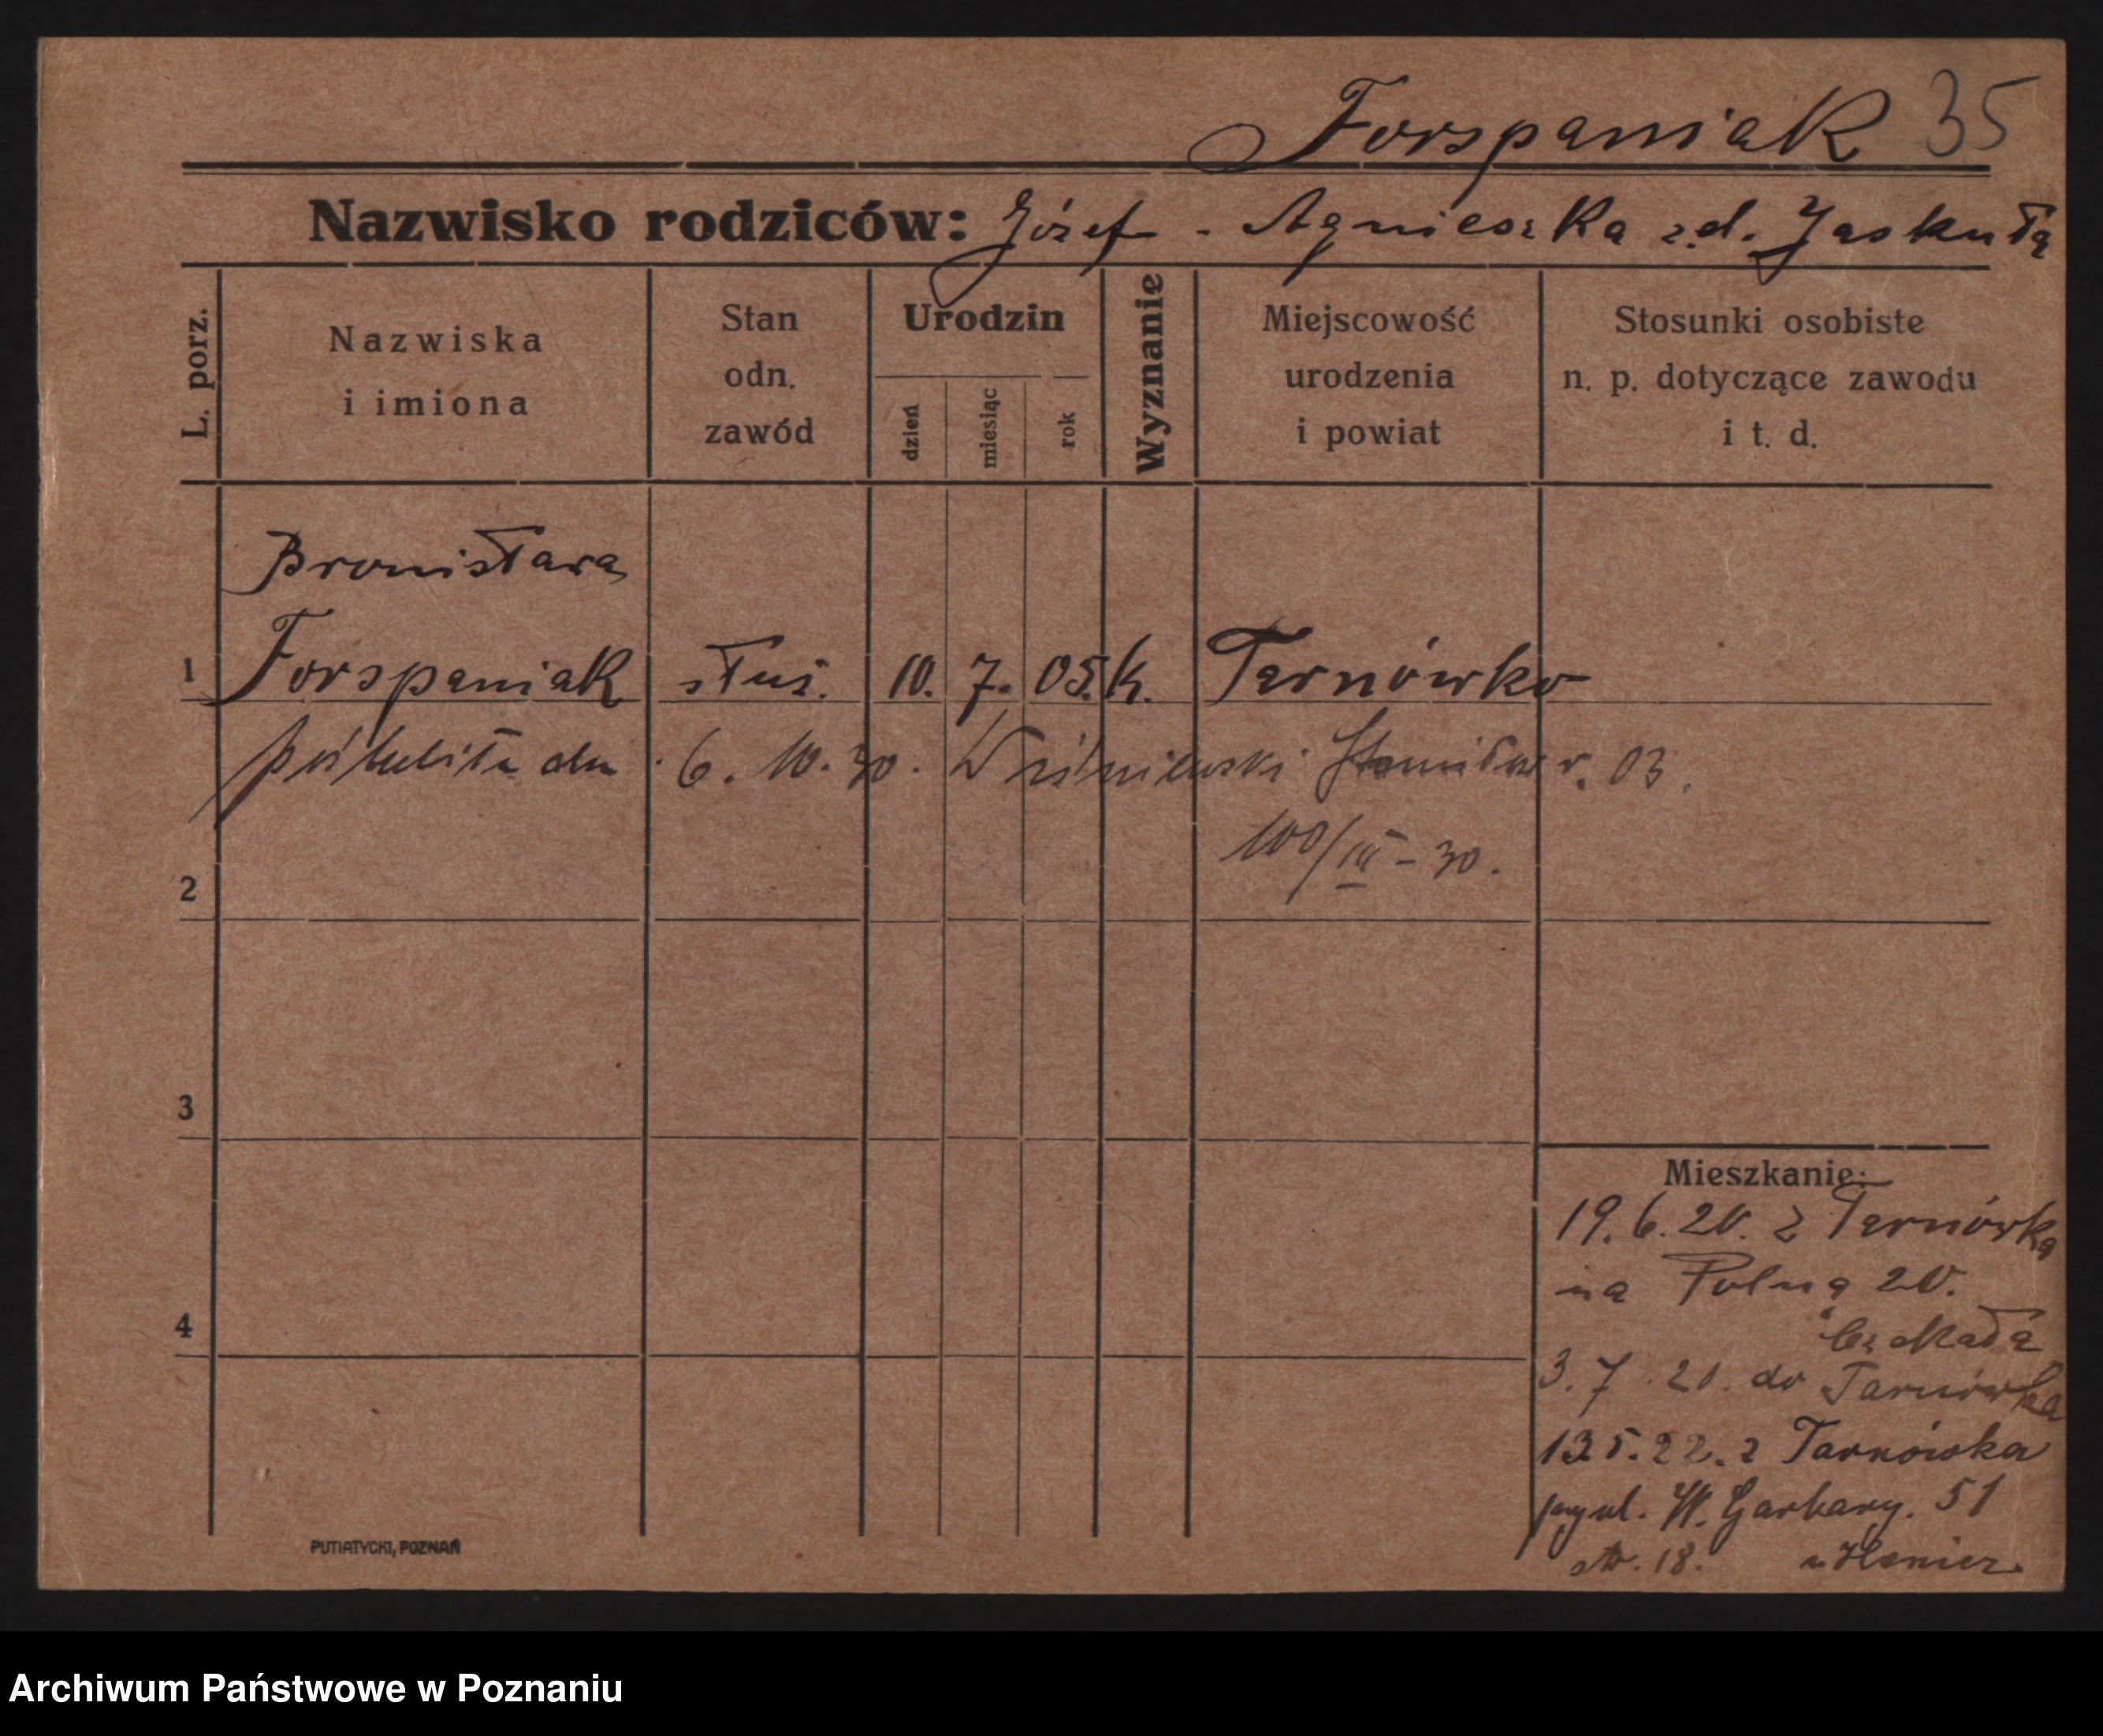 Forspaniak 35
Nazwisko rodziców: Józef - Agnieszka z.d. Jaskuła
L. porz.
Nazwiska
i imiona
Stan
odn.
zawód
Urodzin
dzień
miesiąc
rok
Wyznanie
Miejscowość
urodzenia
i powiat
Stosunki osobiste
n. p. dotyczące zawodu
i t. d.
Bronisława
1 Forspaniak służ. 10. 7. 05. k. Tarnówko
poślubiła dn. 6. 10. 30. Wiśniewski Stanisław r. 03.
100/III - 30.
2
3
4
Mieszkanie:
19. 6. 20. z Tarnówka
na Polną 20.
3. 7. 20. do Tarnówka
13 5. 22. z Tarnówka
ul. W. Garbary. 51
str. 18. u
PUTIATYCKI, POZNAŃ
Archiwum Państwowe w Poznaniu